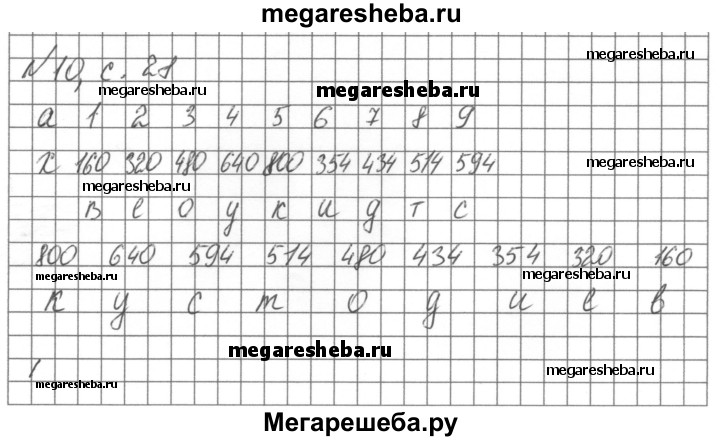 megaresheba.ru
megaresheba.ru
№10, с. 21
megaresheba.ru
megaresheba.ru
а 1 2 3 4 5 6 7 8 9
х 160 320 480 640 800 354 434 514 594
megaresheba.ru
megaresheba.ru
в е о у к и д т с
800 640 594 514 480 434 354 320 160
megaresheba.ru
megaresheba.ru
к у с т о д и е в
megaresheba.ru
megaresheba.ru
megaresheba.ru
Мегарешеба.ру